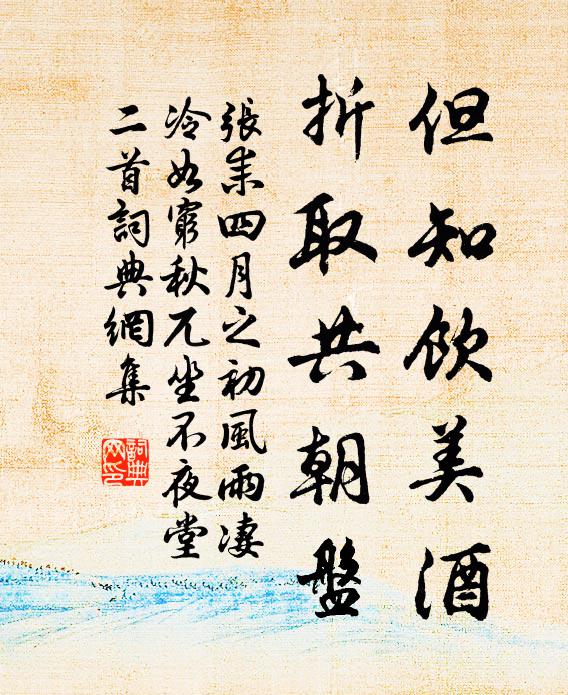 但知飲美酒
折取共朝盤
張耒四月之初風雨淒
冷如窮秋兀坐不夜堂
二首詞典網集
詞典
網印